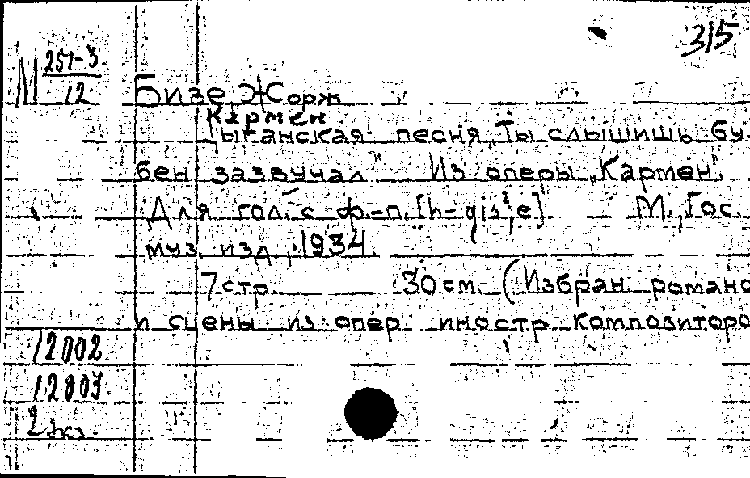 315
М 257-3
12
Бизе Жорж
Кармен
Цыганская песня „Ты слышишь бу-
бен зазвучал" Из оперы „Кармен".
Для гол. с ф.-п. [h-gis², e] М., Гос.
муз. изд., 1934.
7 стр. 30 см. (Избран. романс
и сцены из опер иностр. композиторо
12002
12803.
2 экз.